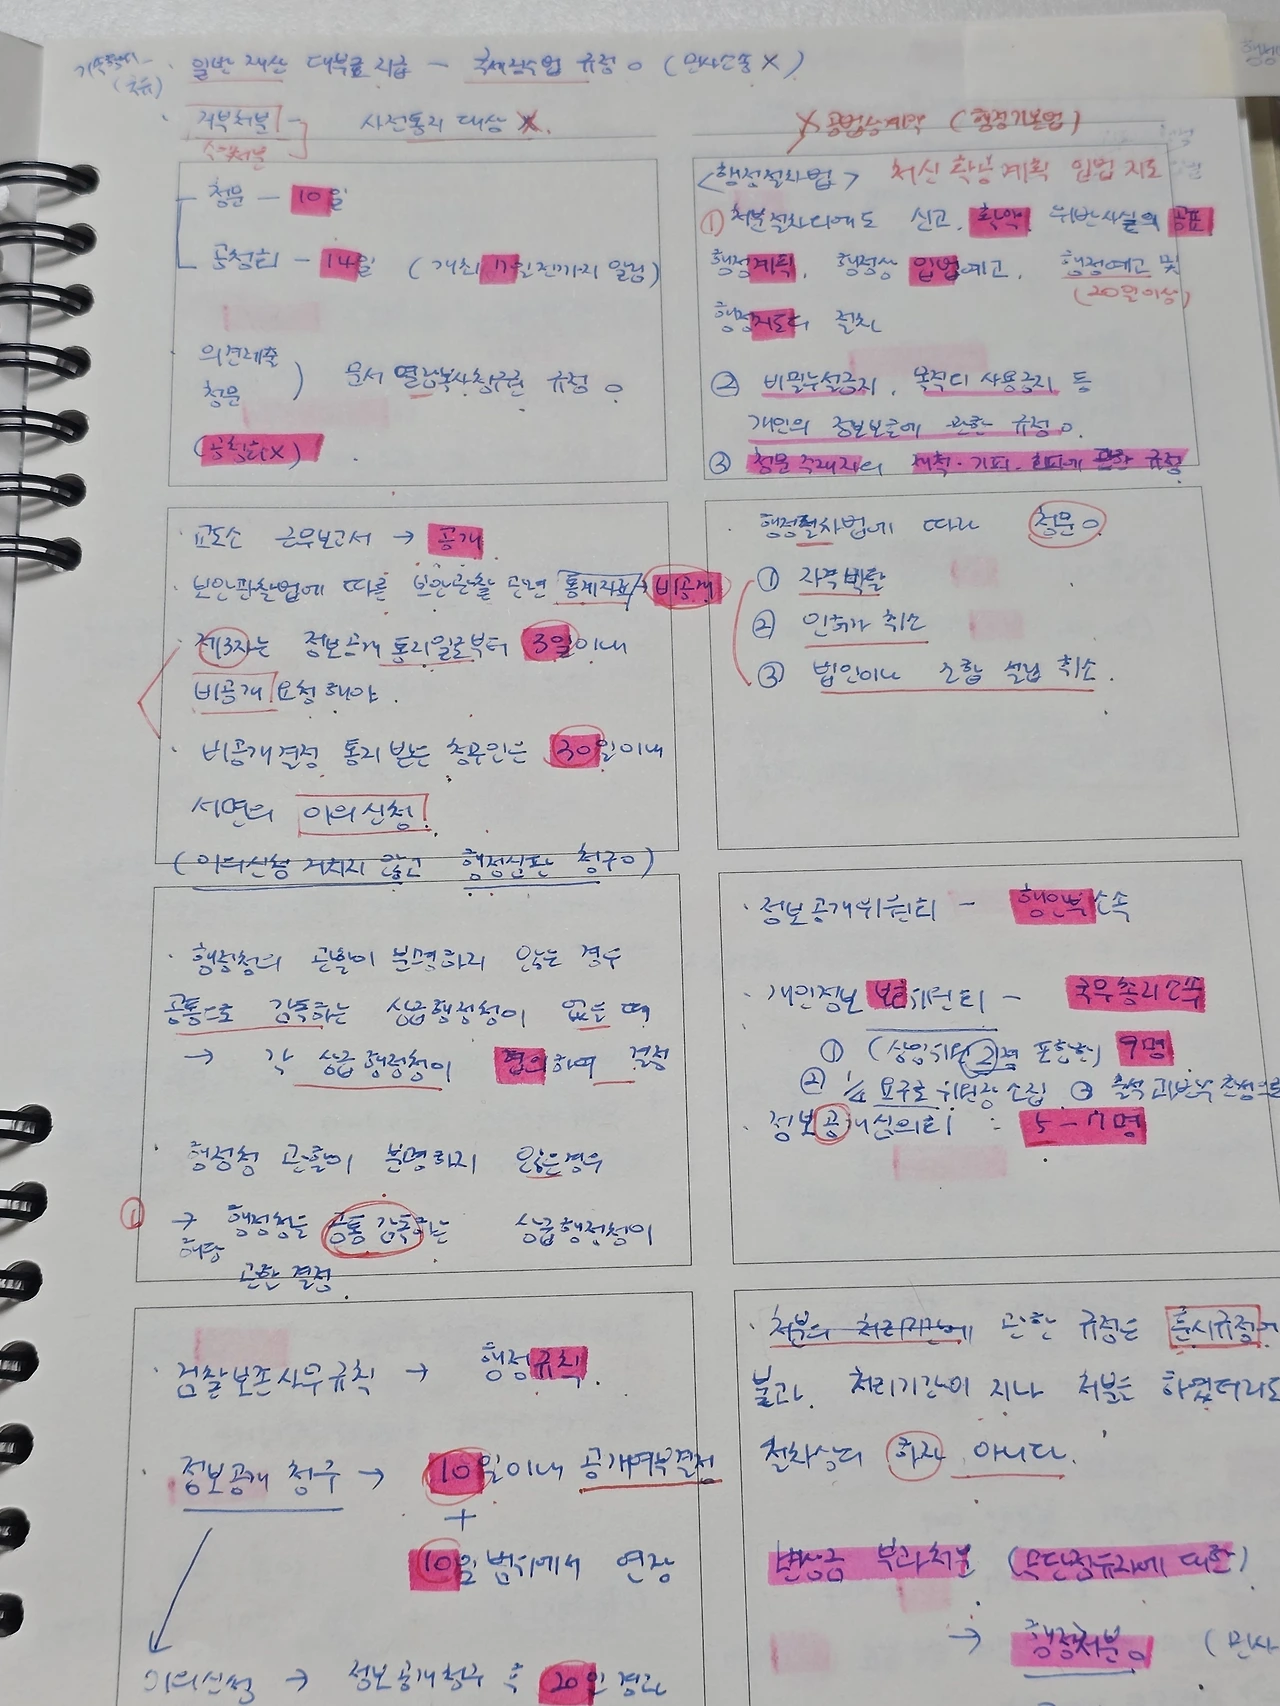 일반 재산 대부료 지급 - 국세징수법 규정 O (민사소송 X)
거부처분 - 사전통지 대상 X.
수익처분
X 공법상계약 (행정기본법)
청문 - 10일
공청회 - 14일 (개최 17일 전까지 알림)
의견제출
청문 ) 문서 열람복사청구권 규정 O
(공청회X)
<행정절차법> 처신 확공계획 입법 지도
① 처분절차 이외에도 신고, 확약, 위반사실의 공표
행정계획, 행정상 입법예고, 행정예고 및
(20일이상)
행정지도의 절차
② 비밀누설금지, 목적외 사용금지 등
개인의 정보보호에 관한 규정 O.
③ 청문 주재자의 제척·기피·회피에 관한 규정
· 교도소 근무보고서 → 공개
· 보안관찰법에 따른 보안관찰 관련 통계자료 → 비공개
· 제3자는 정보공개 통지일로부터 3일이내
비공개 요청해야.
· 비공개결정 통지 받은 청구인은 30일이내
서면의 이의신청.
(이의신청 거치지 않고 행정심판 청구O)
· 행정절차법에 따라 청문O
① 자격박탈
② 인허가 취소
③ 법인이나 조합 설립 취소.
· 행정청의 관할이 분명하지 않는 경우
공통으로 감독하는 상급행정청이 없을 때
→ 각 상급행정청이 협의하여 결정
행정청 관할이 분명하지 않은경우
① → 행정청을 공통 감독하는 상급행정청이
해당
관할 결정.
· 정보공개위원회 - 행안부소속
· 개인정보 보호위원회 - 국무총리소속
① (상임위원 2명 포함한) 9명
② 1/4 요구로 위원장 소집 ③ 출석 과반수 찬성으로
· 정보공개심의회 : 5-7명
· 검찰보존사무규칙 → 행정규칙.
· 정보공개 청구 → 10일이내 공개여부결정
+
10일 범위에서 연장
이의신청 → 정보공개청구 후 20일 경과
· 처분의 처리기간에 관한 규정은 훈시규정에
불과. 처리기간이 지나 처분을 하였더라도
절차상의 하자 아니다.
변상금 부과처분 (무단점유자에 대한)
→ 행정처분O (민사